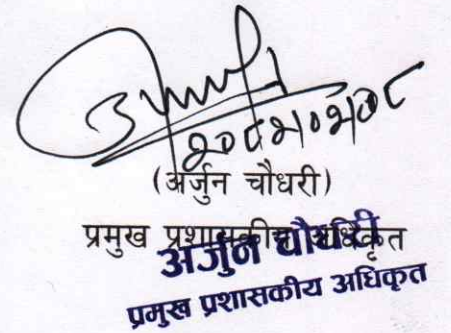 (अर्जुन चौधरी)
प्रमुख प्रशासकीय अधिकृत
अर्जुन चौधरी
प्रमुख प्रशासकीय अधिकृत